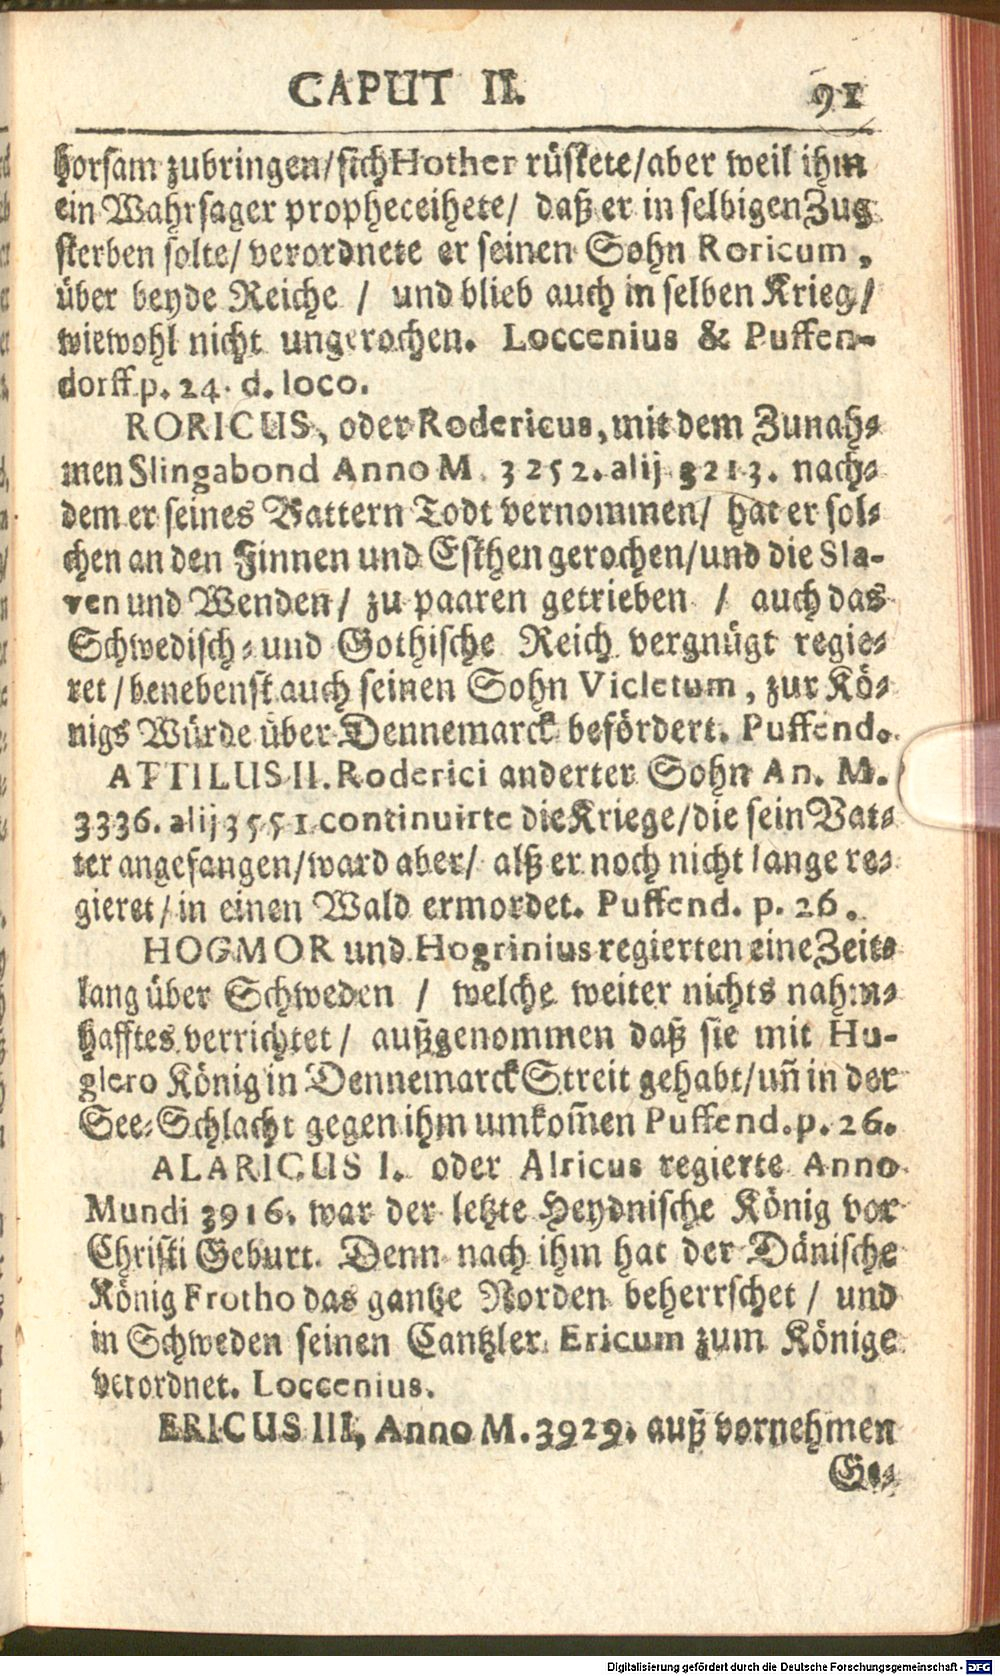 CAPUT II. 91
horsam zubringen/ sich Hother rüstete/ aber weil ihm
ein Wahrsager propheceihete/ daß er in selbigen Zug
sterben solte/ verordnete er seinen Sohn Roricum,
über beyde Reiche / und blieb auch in selben Krieg/
wiewohl nicht ungerochen. Loccenius & Puffen-
dorff p. 24. d. loco.
RORICUS, oder Rodericus, mit dem Zunah-
men Slingabond Anno M. 3252. alij 3213. nach-
dem er seines Vattern Todt vernommen/ hat er sol-
chen an den Finnen und Esthen gerochen/ und die Sla-
ven und Wenden/ zu paaren getrieben / auch das
Schwedisch- und Gothische Reich vergnügt regie-
ret / benebenst auch seinen Sohn Vicletum, zur Kö-
nigs Würde über Dennemarck befördert. Puffend.
ATTILUS II. Roderici anderter Sohn An. M.
3336. alij 3551 continuirte die Kriege/ die sein Vat-
ter angefangen/ ward aber/ alß er noch nicht lange re-
gieret/ in einen Wald ermordet. Puffend. p. 26.
HOGMOR und Hogrinius regierten eine Zeit-
lang über Schweden / welche weiter nichts nahm-
hafftes verrichtet/ außgenommen daß sie mit Hu-
glero König in Dennemarck Streit gehabt/ uñ in der
See-Schlacht gegen ihm umkom̃en Puffend. p. 26.
ALARICUS I. oder Alricus regierte Anno
Mundi 3916. war der letzte Heydnische König vor
Christi Geburt. Denn nach ihm hat der Dänische
König Frotho das gantze Norden beherrschet / und
in Schweden seinen Cantzler Ericum zum Könige
verordnet. Loccenius.
ERICUS III, Anno M. 3929. auß vornehmen
Ge-
Digitalisierung gefördert durch die Deutsche Forschungsgemeinschaft - DFG